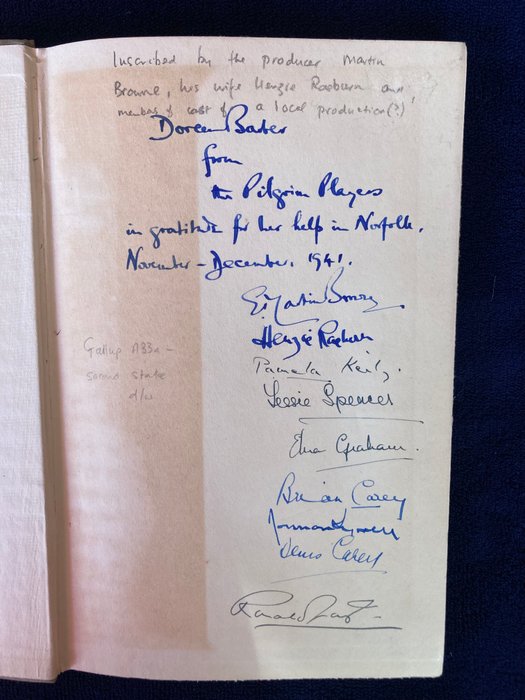 Inscribed by the producer Martin
Browne, his wife Henzie Raeburn and
members of cast of a local production(?)
Doreen Barber
from
the Pilgrim Players
in gratitude for her help in Norfolk.
November - December. 1941.
E. Martin Browne
Henzie Raeburn
Gallup A33a -
second state
d/w
Pamela Keily.
Jessie Spencer
Graham.
Brian Carey
Norman
Denis Carey
Ronald